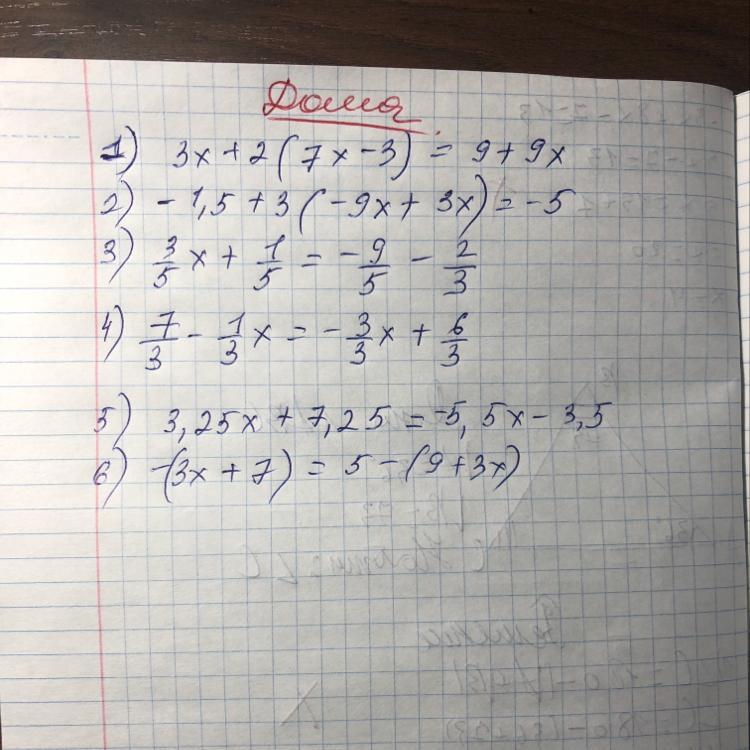 Дома
1) 3x + 2(7x - 3) = 9 + 9x
2) - 1,5 + 3(-9x + 3x) = -5
3) 3/5 x + 1/5 = - 9/5 - 2/3
4) 7/3 - 1/3 x = - 3/3 x + 6/3
5) 3,25x + 7,25 = -5,5x - 3,5
6) -(3x + 7) = 5 - (9 + 3x)